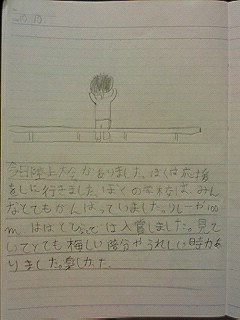 今日陸上大会がありました。ぼくは応援
をしに行きました。ぼくの学校は、みん
なとてもがんばっていました。リレーや100
mははとで は入賞しました。見て
いてとても悔しい時分やうれしい時があ
りました。楽しかた